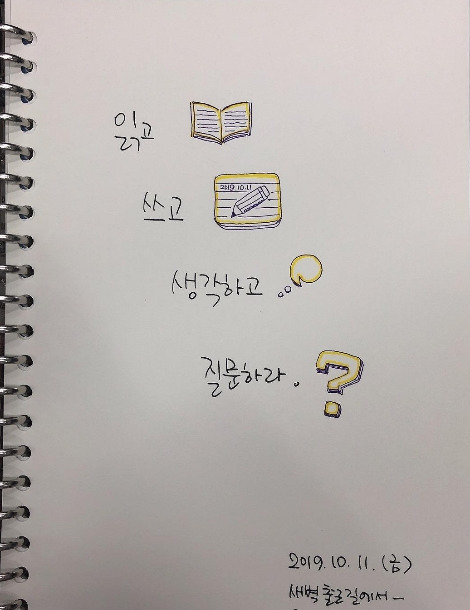 읽고
2019.10.11
쓰고
생각하고
질문하라.
?
2019.10.11.(금)
새벽 출근길에서-